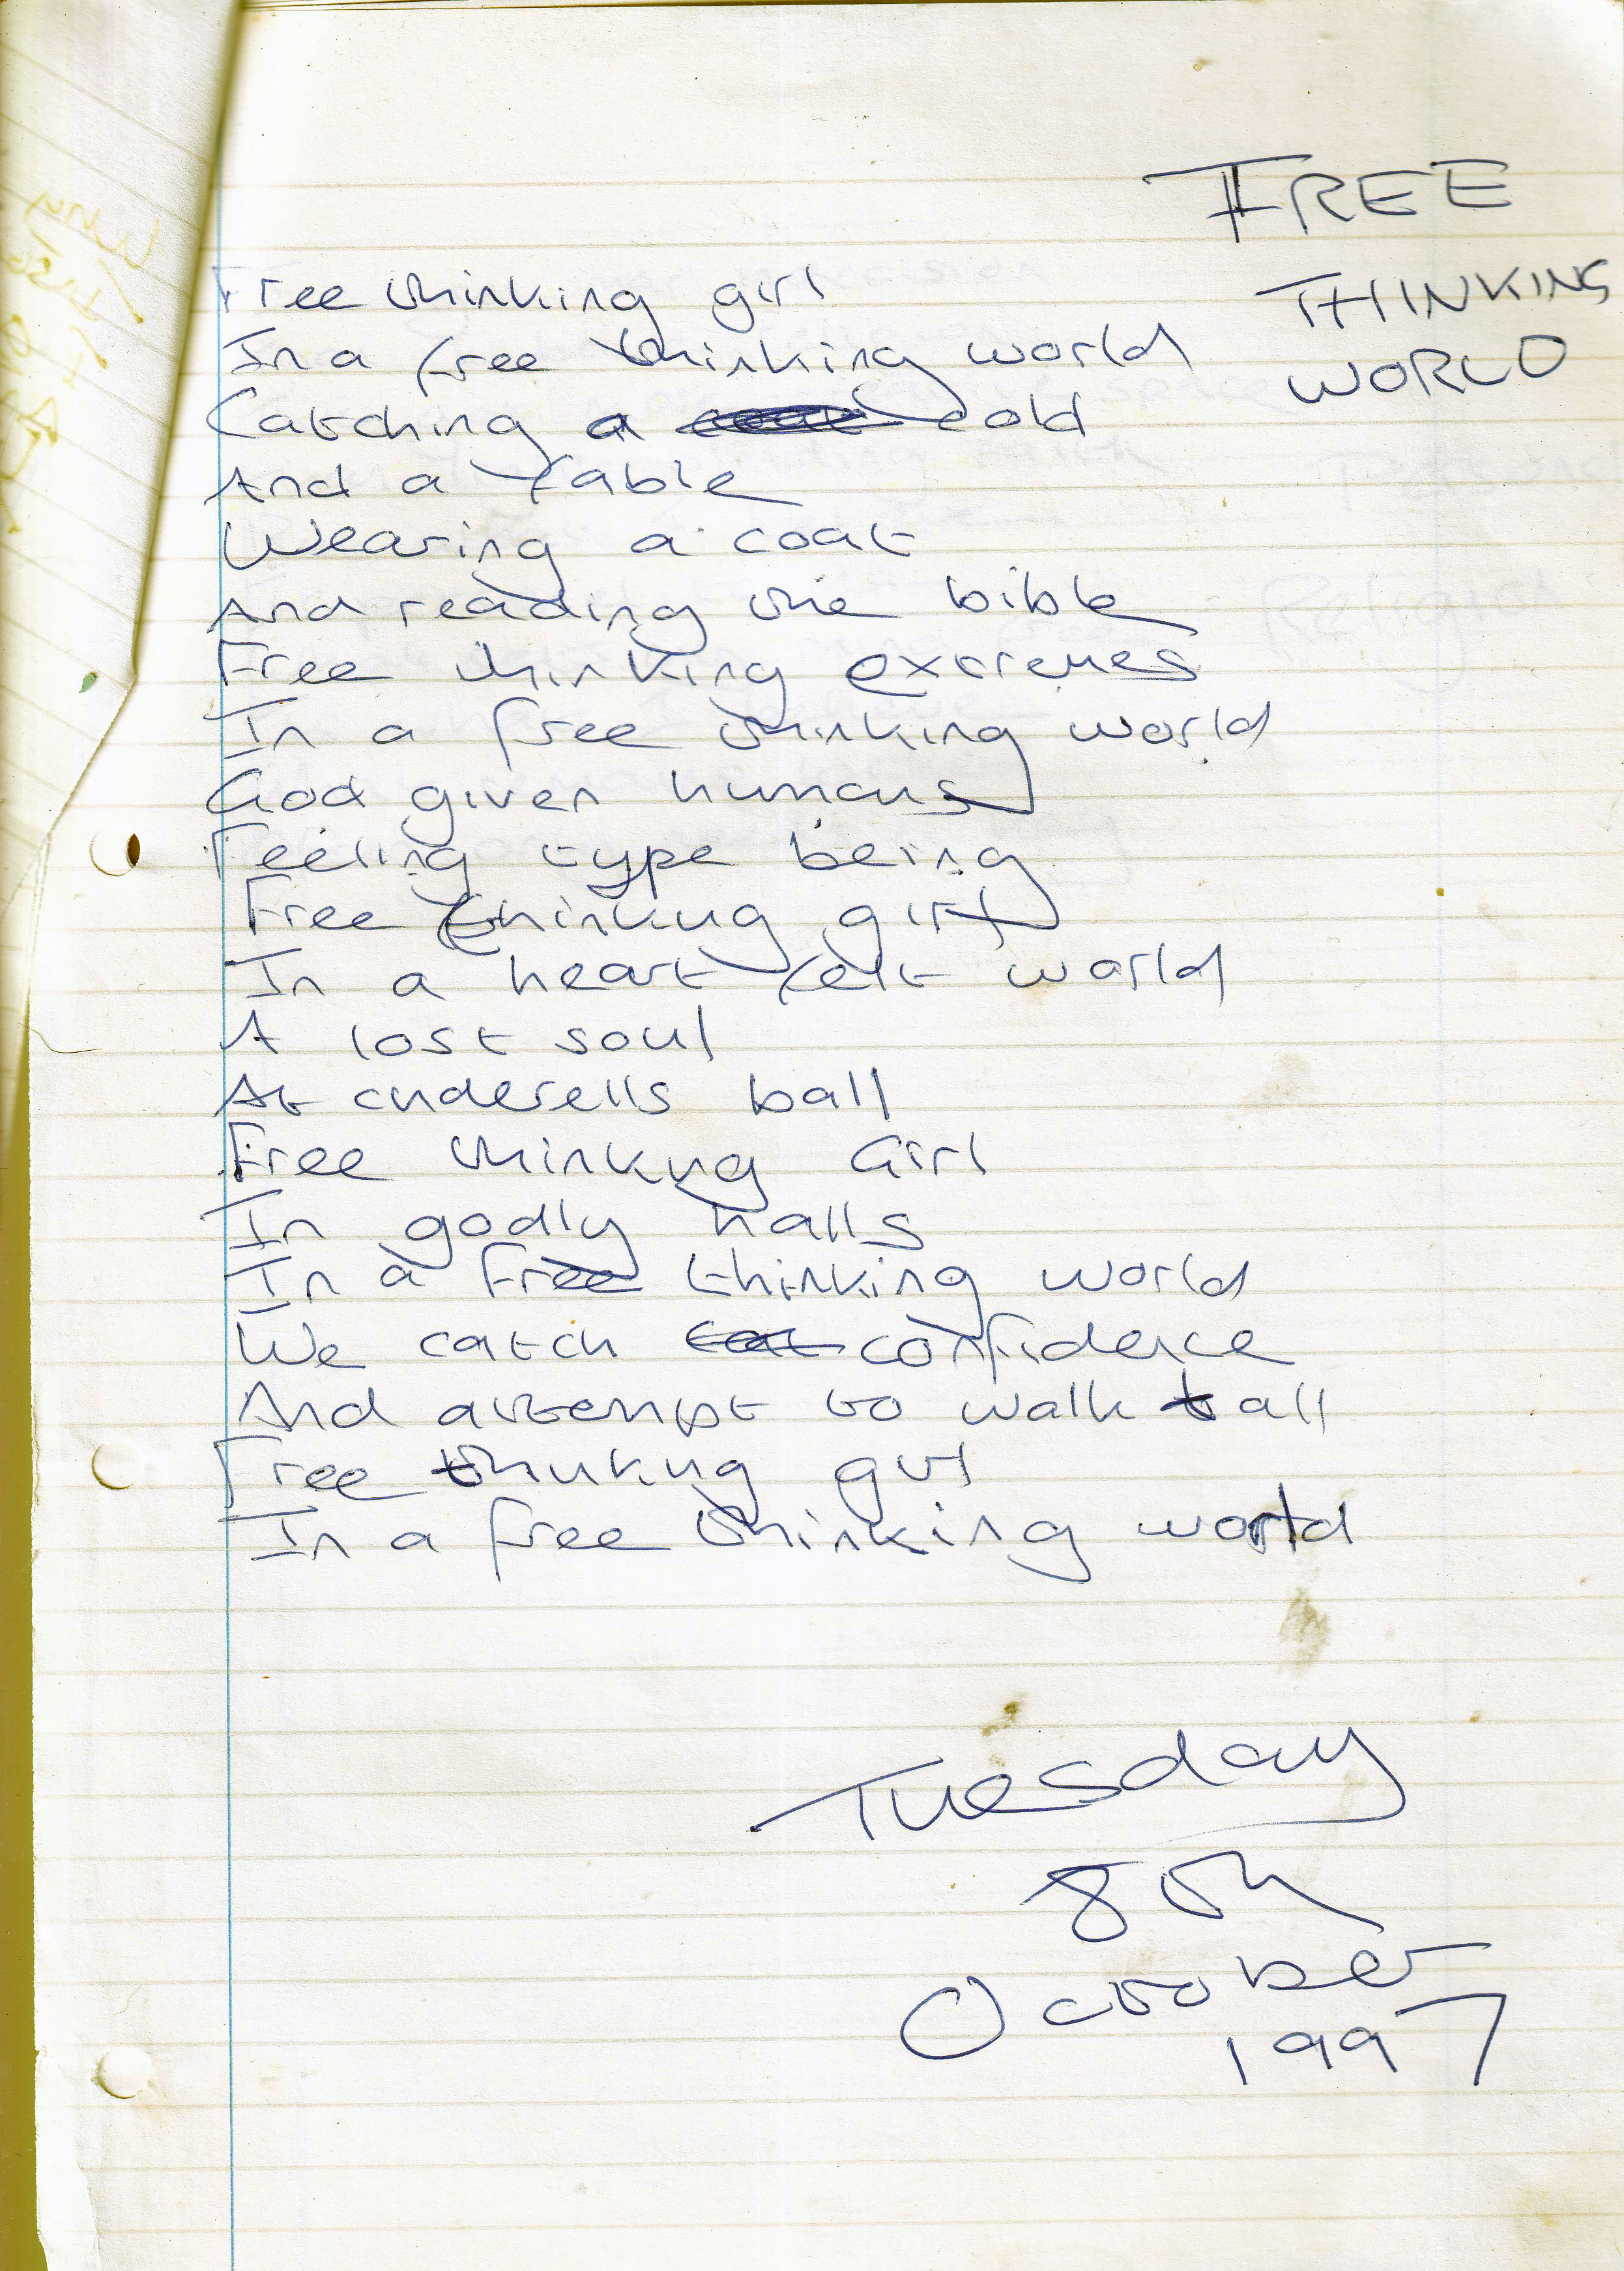 FREE
THINKING
WORLD
Free thinking girl
In a free thinking world
Catching a cold
And a fable
Wearing a coat
And reading the bible
Free thinking extremes
In a free thinking world
God given humans
Feeling type being
Free thinking girl
In a heart felt world
A lost soul
At cnderells ball
Free thinking Girl
In godly halls
In a free thinking world
We catch confidence
And attempt to walk tall
Free thinking girl
In a free thinking world
Tuesday
8th
October
1997